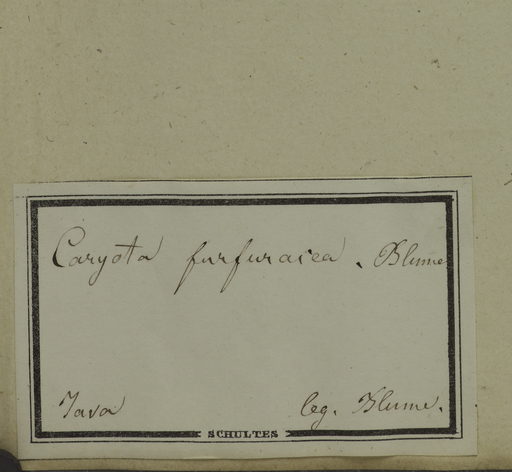 Caryota furfuracea. Blume
Java leg. Blume.
SCHULTES